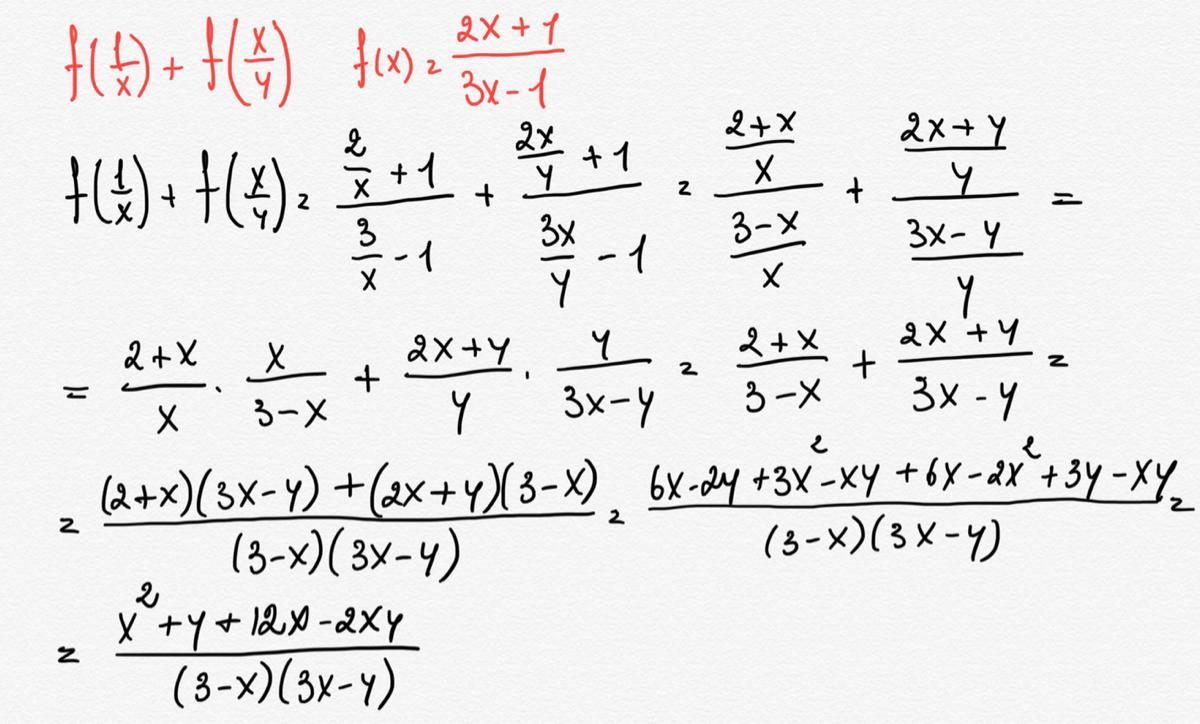 f(1/x) + f(x/y) f(x) = (2x + 1)/(3x - 1)
f(1/x) + f(x/y) = (2/x + 1)/(3/x - 1) + (2x/y + 1)/(3x/y - 1) = ((2+x)/x)/((3-x)/x) + ((2x+y)/y)/((3x-y)/y) =
= (2+x)/x · x/(3-x) + (2x+y)/y · y/(3x-y) = (2+x)/(3-x) + (2x+y)/(3x-y) =
= ((2+x)(3x-y) + (2x+y)(3-x))/((3-x)(3x-y)) = (6x-2y+3x²-xy+6x-2x²+3y-xy)/((3-x)(3x-y)) =
= (x²+y+12x-2xy)/((3-x)(3x-y))